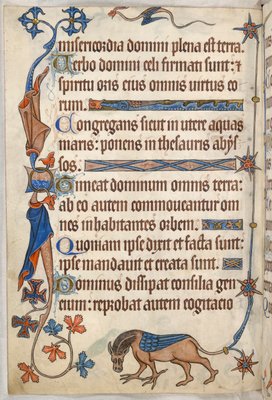 misericordia domini plena est terra.
Verbo domini celi firmati sunt:
spiritu oris eius omnis virtus eo
rum.
Congregans sicut in utere aquas
maris: ponens in thesauris abys
sos.
Timeat dominum omnis terra:
ab eo autem commoveantur om
nes inhabitantes orbem.
Quoniam ipse dixit et facta sunt:
ipse mandavit et creata sunt.
Dominus dissipat consilia gen
tium: reprobat autem cogitacio